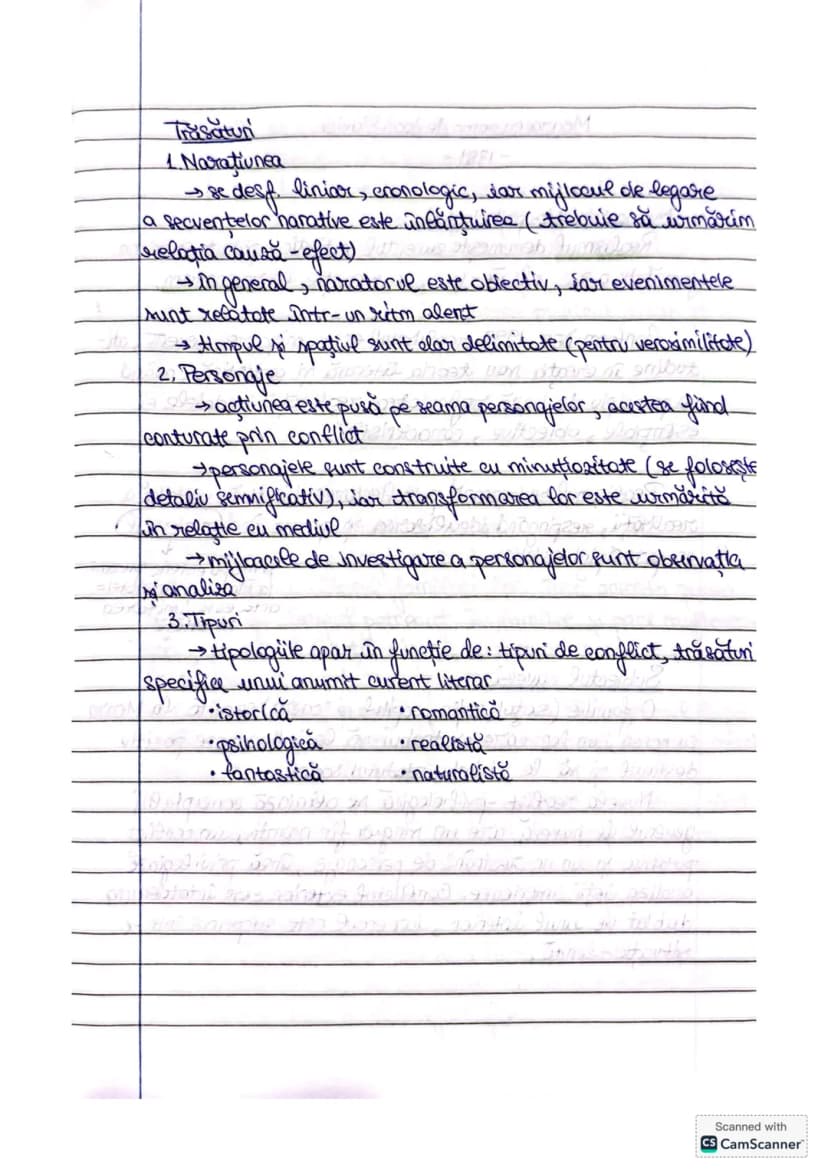 Trăsături
1. Narațiunea
→ se desf. liniar, cronologic, iar mijlocul de legare
a secvențelor narative este înlănțuirea (trebuie să urmărim
relația cauză-efect)
→ în general, naratorul este obiectiv, iar evenimentele
sunt relatate într-un ritm alert
→ timpul și spațiul sunt clar delimitate (pentru verosimilitate)
2. Personaje
→ acțiunea este pusă pe seama personajelor, acestea fiind
conturate prin conflict
→ personajele sunt construite cu minuțiozitate (se folosește
detaliu semnificativ), iar transformarea lor este urmărită
în relație cu mediul
→ mijloacele de investigare a personajelor sunt observația
și analiza
3. Tipuri
→ tipologiile apar în funcție de: tipuri de conflict, trăsături
specifice unui anumit curent literar
• istorică • romantică
• psihologică • realistă
• fantastică • naturalistă
Scanned with
CS CamScanner